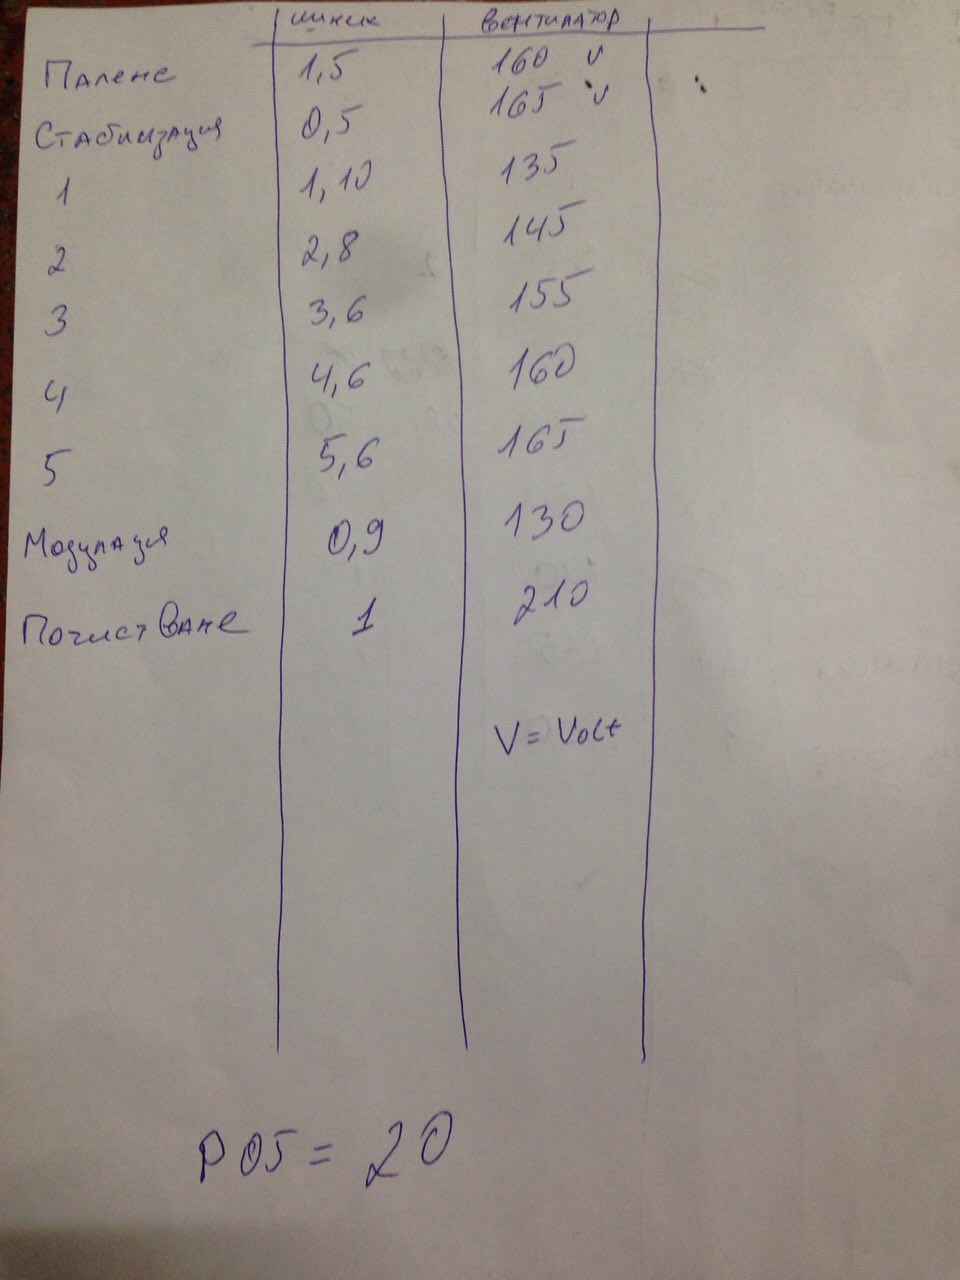 шнек вентилатор
Палене 1,5 160 v
Стабилизация 0,5 165 v
1 1,10 135
2 2,8 145
3 3,6 155
4 4,6 160
5 5,6 165
Модулация 0,9 130
Почистване 1 210
V = Volt
P05 = 20